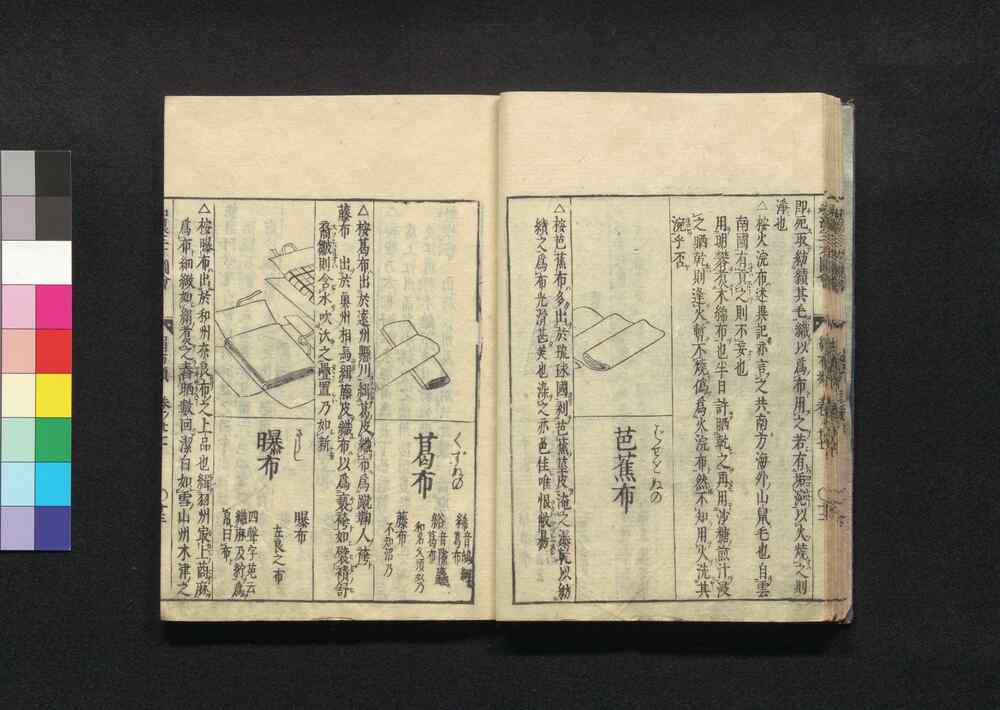 即死取紡績其毛織以爲布用之若有垢涴以火燒之則
淨也
△按火浣布述異記亦言之共南方海外山鼠毛也自雲
南國有貢之則不妄也
用明礬煑木綿布也半日許晒乾之再用沙糖煎汁浸
之晒乾則逢火暫不燒僞爲火浣布然不知用火洗其
浣乎否
芭蕉布
ばせをぬの
△按芭蕉布多出於琉球國剥芭蕉莖皮淹之洒乾以紡
績之爲布光滑甚美也染之亦色佳唯恨敝易
葛布
くずぬの
絺音鴟細葛布
綌音隙麤葛布
和名久須奴乃
藤布
不知沼乃
△按葛布出於遠州懸川緝葛皮織布爲蹴鞠人袴
藤布 出於奧州相馬緝藤皮織布以爲裘袴如襞積舒
裔皺則含水吹沃之疊置乃如新
曝布
さらし
曝布
左良之布
四聲字苑云
織麻及紵爲
帛曰布
△按曝布出於和州奈良布之上品也緝羽州最上靑麻
爲布細緻如絹者舂之晒數回潔白如雪山州木津之